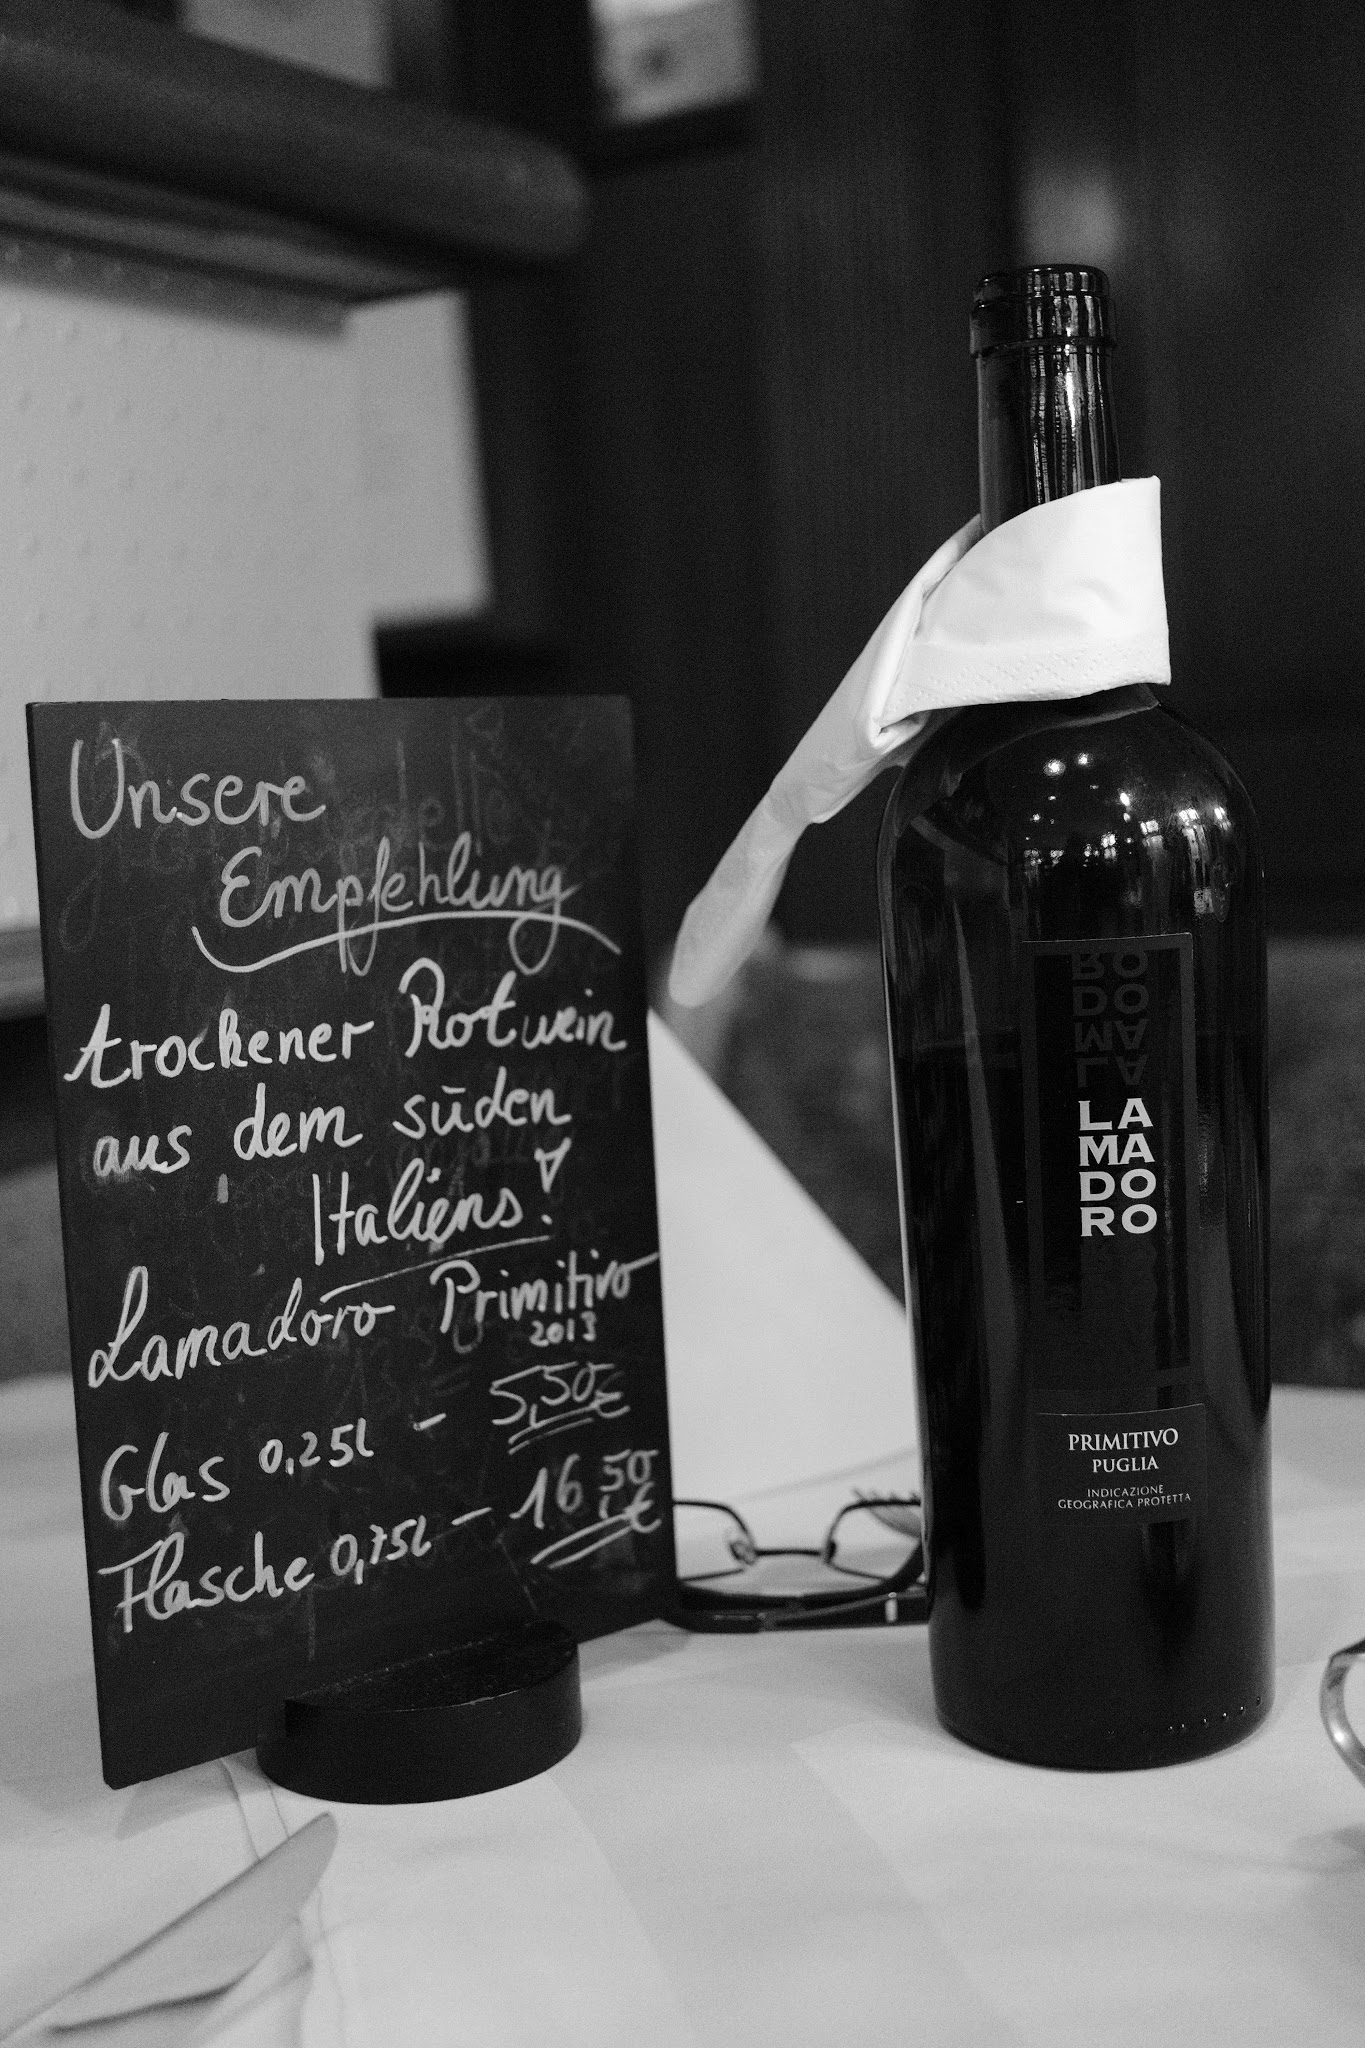 Unsere
Empfehlung
trockener Rotwein
aus dem süden
Italiens!
Lamadoro Primitivo
2013
Glas 0,25l - 5,50€
Flasche 0,75l - 16,50€
LA
MA
DO
RO
PRIMITIVO
PUGLIA
INDICAZIONE
GEOGRAFICA PROTETTA